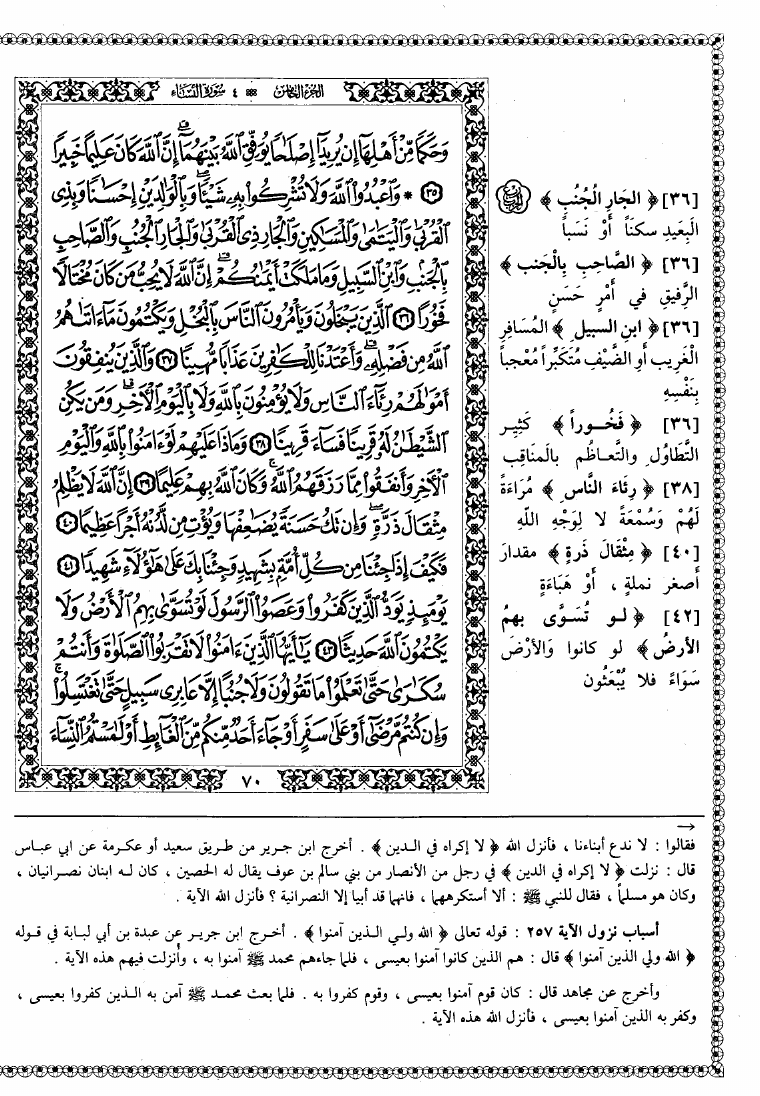 الجزء الخامس ٤ سورة النساء
وَحَكَمًا مِّنْ أَهْلِهَآ إِن يُرِيدَآ إِصْلَٰحًا يُوَفِّقِ ٱللَّهُ بَيْنَهُمَآ ۗ إِنَّ ٱللَّهَ كَانَ عَلِيمًا خَبِيرًا
٣٥ * وَٱعْبُدُوا۟ ٱللَّهَ وَلَا تُشْرِكُوا۟ بِهِۦ شَيْـًٔا ۖ وَبِٱلْوَٰلِدَيْنِ إِحْسَٰنًا وَبِذِى
ٱلْقُرْبَىٰ وَٱلْيَتَٰمَىٰ وَٱلْمَسَٰكِينِ وَٱلْجَارِ ذِى ٱلْقُرْبَىٰ وَٱلْجَارِ ٱلْجُنُبِ وَٱلصَّاحِبِ
بِٱلْجَنۢبِ وَٱبْنِ ٱلسَّبِيلِ وَمَا مَلَكَتْ أَيْمَٰنُكُمْ ۗ إِنَّ ٱللَّهَ لَا يُحِبُّ مَن كَانَ مُخْتَالًا
فَخُورًا ٣٦ ٱلَّذِينَ يَبْخَلُونَ وَيَأْمُرُونَ ٱلنَّاسَ بِٱلْبُخْلِ وَيَكْتُمُونَ مَآ ءَاتَىٰهُمُ
ٱللَّهُ مِن فَضْلِهِۦ ۗ وَأَعْتَدْنَا لِلْكَٰفِرِينَ عَذَابًا مُّهِينًا ٣٧ وَٱلَّذِينَ يُنفِقُونَ
أَمْوَٰلَهُمْ رِئَآءَ ٱلنَّاسِ وَلَا يُؤْمِنُونَ بِٱللَّهِ وَلَا بِٱلْيَوْمِ ٱلْـَٔاخِرِ ۗ وَمَن يَكُنِ
ٱلشَّيْطَٰنُ لَهُۥ قَرِينًا فَسَآءَ قَرِينًا ٣٨ وَمَاذَا عَلَيْهِمْ لَوْ ءَامَنُوا۟ بِٱللَّهِ وَٱلْيَوْمِ
ٱلْـَٔاخِرِ وَأَنفَقُوا۟ مِمَّا رَزَقَهُمُ ٱللَّهُ ۚ وَكَانَ ٱللَّهُ بِهِمْ عَلِيمًا ٣٩ إِنَّ ٱللَّهَ لَا يَظْلِمُ
مِثْقَالَ ذَرَّةٍ ۖ وَإِن تَكُ حَسَنَةً يُضَٰعِفْهَا وَيُؤْتِ مِن لَّدُنْهُ أَجْرًا عَظِيمًا ٤٠
فَكَيْفَ إِذَا جِئْنَا مِن كُلِّ أُمَّةٍۭ بِشَهِيدٍ وَجِئْنَا بِكَ عَلَىٰ هَٰٓؤُلَآءِ شَهِيدًا ٤١
يَوْمَئِذٍ يَوَدُّ ٱلَّذِينَ كَفَرُوا۟ وَعَصَوُا۟ ٱلرَّسُولَ لَوْ تُسَوَّىٰ بِهِمُ ٱلْأَرْضُ وَلَا
يَكْتُمُونَ ٱللَّهَ حَدِيثًا ٤٢ يَٰٓأَيُّهَا ٱلَّذِينَ ءَامَنُوا۟ لَا تَقْرَبُوا۟ ٱلصَّلَوٰةَ وَأَنتُمْ
سُكَٰرَىٰ حَتَّىٰ تَعْلَمُوا۟ مَا تَقُولُونَ وَلَا جُنُبًا إِلَّا عَابِرِى سَبِيلٍ حَتَّىٰ تَغْتَسِلُوا۟ ۚ
وَإِن كُنتُم مَّرْضَىٰٓ أَوْ عَلَىٰ سَفَرٍ أَوْ جَآءَ أَحَدٌ مِّنكُم مِّنَ ٱلْغَآئِطِ أَوْ لَٰمَسْتُمُ ٱلنِّسَآءَ
٧٠
[٣٦] ﴿ الجَارِ الْجُنُبِ ﴾
البَعِيدِ سكنَاً أَوْ نَسَباً
[٣٦] ﴿ الصَّاحِبِ بِالْجَنب ﴾
الرَّفيقِ في أَمْرٍ حَسَنٍ
[٣٦] ﴿ ابنِ السبيلِ ﴾ المُسَافِرِ
الْغَريب أَوِ الضَّيْفِ مُتَكَبِّراً مُعْجباً
بِنَفْسِهِ
[٣٦] ﴿ فَخُوراً ﴾ كَثِير
التَّطَاوُلِ والتَّعاظُم بالمَناقِب
[٣٨] ﴿ رِئَاءَ النَّاس ﴾ مُرَاءَةً
لَهُمْ وَسُمْعَةً لا لِوَجْهِ اللَّهِ
[٤٠] ﴿ مِثْقَالَ ذَرةٍ ﴾ مقدارَ
أَصغر نملةٍ ، أَوْ هَبَاءَةٍ
[٤٢] ﴿ لو تُسَوَّى بهمُ
الأرضُ ﴾ لو كانوا وَالأرْضَ
سَوَاءً فلا يُبْعَثُون
→
فقالوا : لا ندع أبناءنا ، فأنزل الله ﴿ لا إكراه في الدين ﴾ . أخرج ابن جرير من طريق سعيد أو عكرمة عن ابي عباس
قال : نزلت ﴿ لا إكراه في الدين ﴾ في رجل من الأنصار من بني سالم بن عوف يقال له الحصين ، كان له ابنان نصرانيان ،
وكان هو مسلماً ، فقال للنبي ﷺ : ألا أستكرههما ، فانهما قد أبيا إلا النصرانية ؟ فأنزل الله الآية .
أسباب نزول الآية ٢٥٧ : قوله تعالى ﴿ الله ولي الذين آمنوا ﴾ . أخرج ابن جرير عن عبدة بن أبي لبابة في قوله
﴿ الله ولي الذين آمنوا ﴾ قال : هم الذين كانوا آمنوا بعيسى ، فلما جاءهم محمد ﷺ آمنوا به ، وأُنزلت فيهم هذه الآية .
وأخرج عن مجاهد قال : كان قوم آمنوا بعيسى ، وقوم كفروا به . فلما بعث محمد ﷺ آمن به الذين كفروا بعيسى ،
وكفر به الذين آمنوا بعيسى ، فأنزل الله هذه الآية .